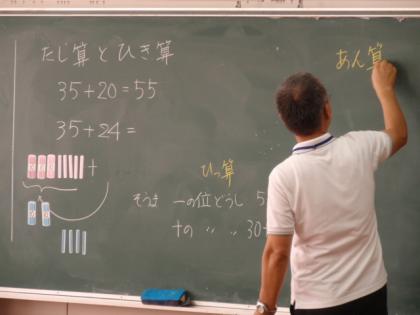 たし算とひき算
あん算
35+20=55
35+24=
+
ひっ算
一の位どうし 5
十の 〃 〃 30